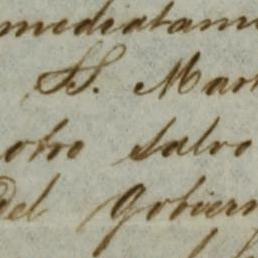 mediatam
S. Mar
otro salvo
Del Gobier